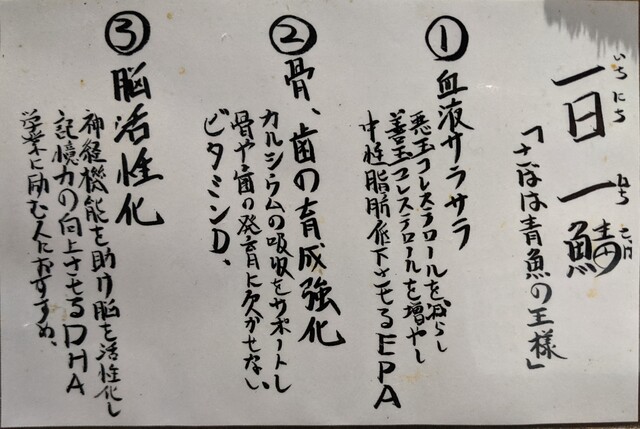 一日一鯖
いちにち いち さば
「さばは青魚の王様」
① 血液サラサラ
悪玉コレステロールを減らし
善玉コレステロールを増やし
中性脂肪低下させるEPA
② 骨、歯の育成強化
カルシウムの吸収をサポートし
骨や歯の発育に欠かせない
ビタミンD、
③ 脳活性化
神経機能を助け脳を活性化し
記憶力の向上させるDHA
学業に励む人におすすめ、